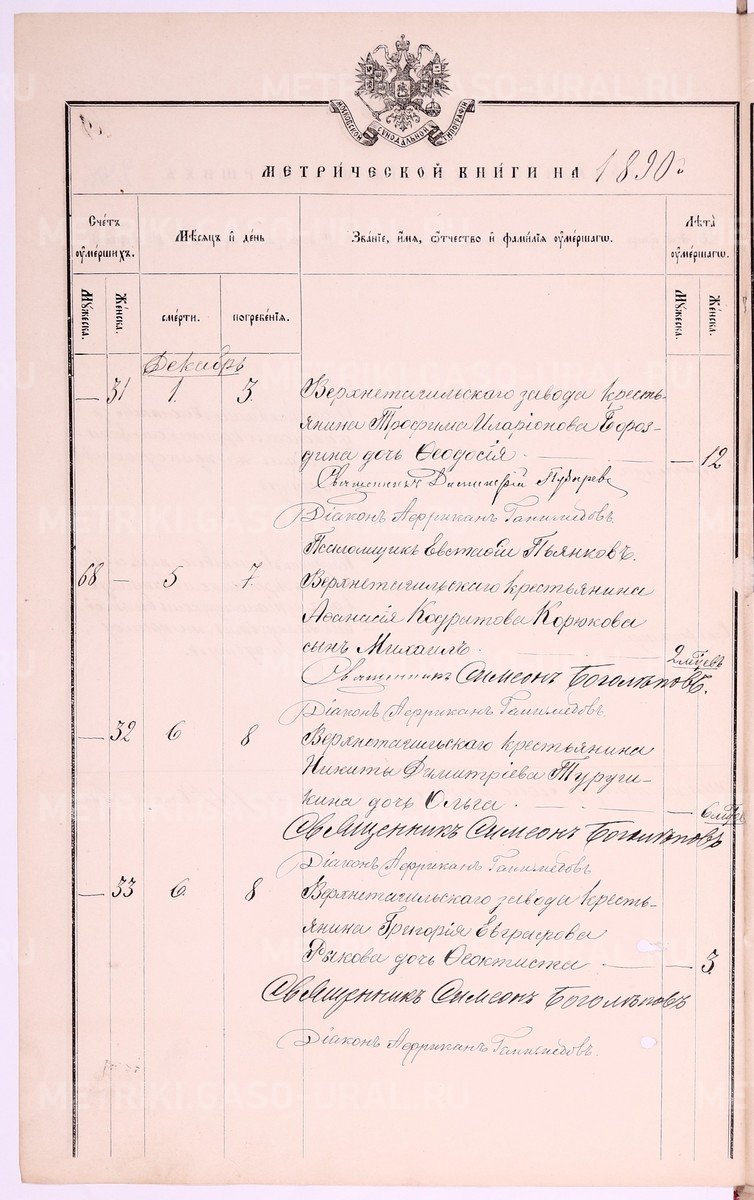 МОСКОВСКОЙ СѴНОДАЛЬНОЙ ТИПОГРАФІИ
МЕТРИ́ЧЕСКОЙ КНИ́ГИ НА 1890 г
Сче́тъ ᲂумершихъ.
Мѣсѧцъ и де́нь
Зва́нїе, и́мѧ, ѻтчество и фами́лїѧ ᲂуме́ршагѡ.
Лѣта̀ ᲂуме́ршагѡ.
Мꙋжеска.
Женска.
сме́рти.
погребе́нїѧ.
Мꙋжеска.
Женска.
Декабрь
— 31 1. 3. Верхнетагильскаго завода кресть-
янина Трофима Иларіонова Бороз-
дина дочь Ѳеодосія. — — 12
Священникъ Димитрій
Діаконъ Африканъ Ганимедовъ.
Псаломщикъ Евстафій Пьянковъ.
68 — 5 7. Верхнетагильскаго крестьянина
Аѳанасія Кодратова Корюкова
сынъ Михаилъ. — 2 мѣсцвъ
Священникъ Симеонъ Боголѣповъ.
Діаконъ Африканъ Ганимедовъ.
— 32 6 8 Верхнетагильскаго крестьянина
Никиты Димитріева
дочь Ольга. — — 6 мѣсц
Священникъ Симеонъ Боголѣповъ
Діаконъ Африканъ Ганимедовъ
— 33 6 8 Верхнетагильскаго завода кресть-
янина Григорія Евграфова
Рыкова дочь Ѳеоктиста — — 3.
Священникъ Симеонъ Боголѣповъ
Діаконъ Африканъ Ганимедовъ.
METRIKI.GASO-URAL.RU